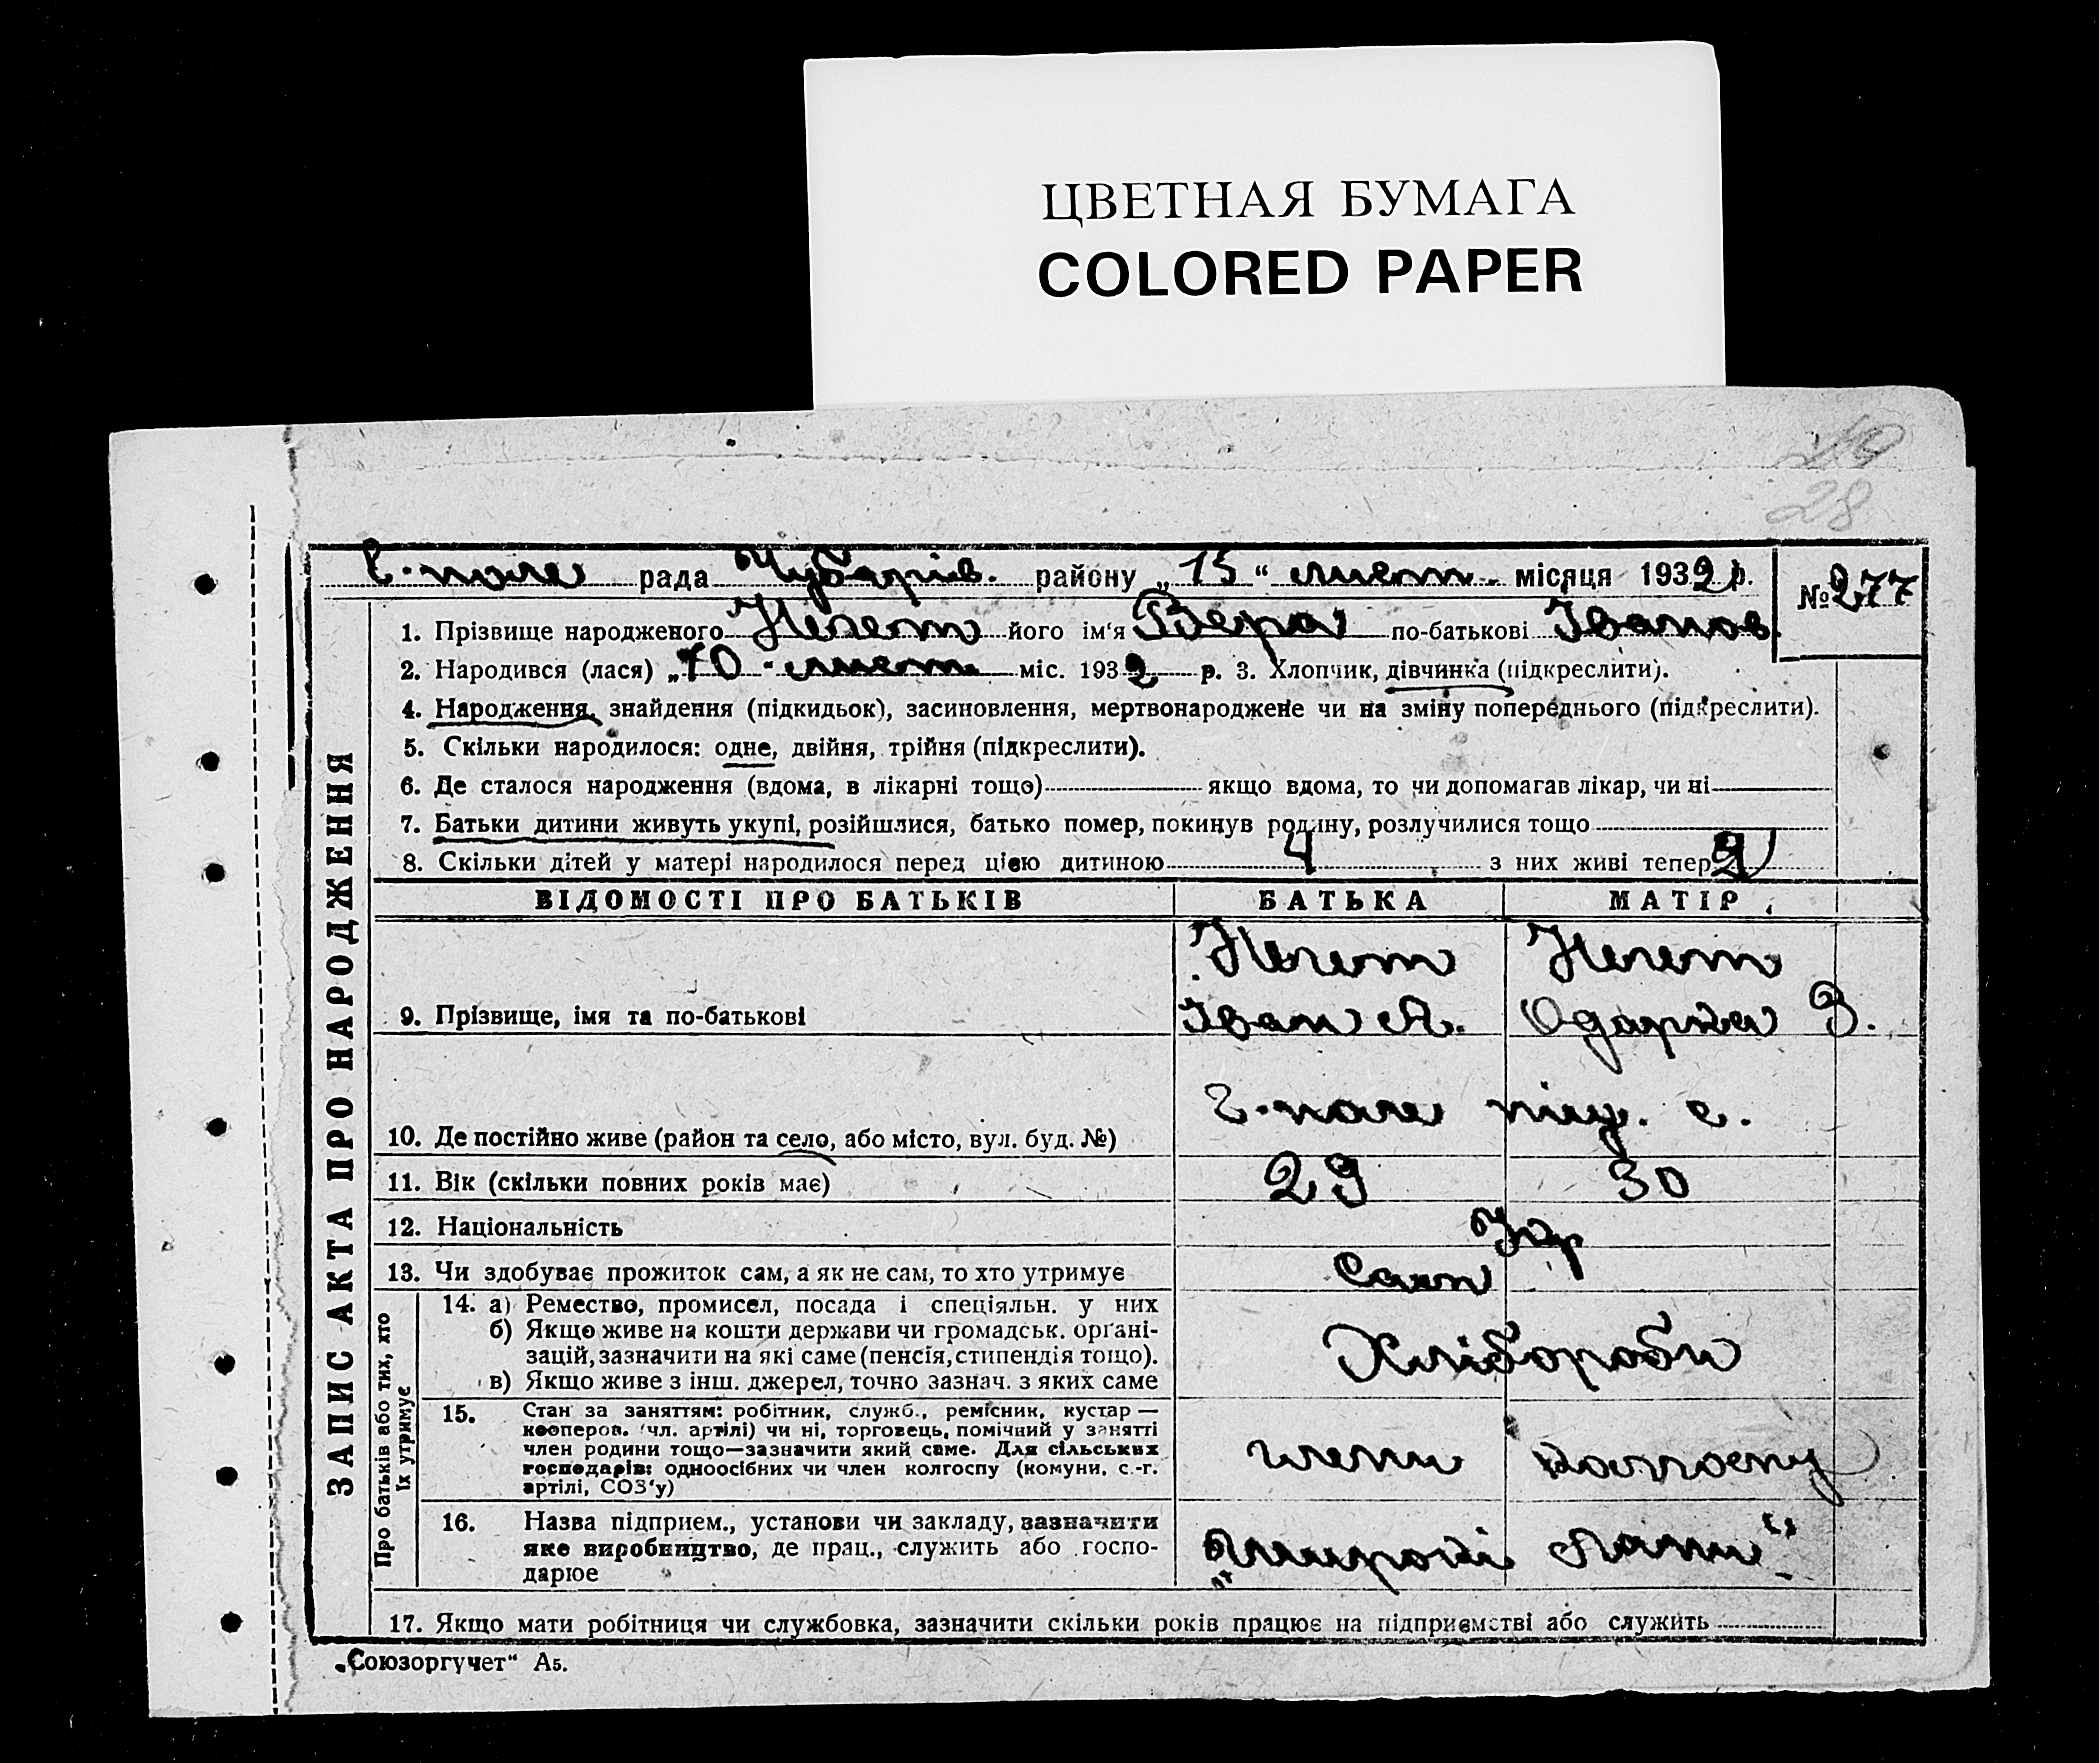 ЦВЕТНАЯ БУМАГА
COLORED PAPER
28
Г-поле рада Чубарів. району „15“ лист. місяця 1932 р. № 277
1. Прізвище народженого Нелет його ім'я Вера по-батькові Іванов.
2. Народився (лася) „10" лист. міс. 1932 р. 3. Хлопчик, дівчинка (підкреслити).
4. Народження, знайдення (підкидьок), засиновлення, мертвонароджене чи на зміну попереднього (підкреслити).
5. Скільки народилося: одне, двійня, трійня (підкреслити).
6. Де сталося народження (вдома, в лікарні тощо) якщо вдома, то чи допомагав лікар, чи ні
7. Батьки дитини живуть укупі, розійшлися, батько помер, покинув родину, розлучилися тощо
8. Скільки дітей у матері народилося перед цією дитиною 4 з них живі тепер 2
ВІДОМОСТІ ПРО БАТЬКІВ БАТЬКА МАТІР
9. Прізвище, імя та по-батькові Нелет Іван А. Нелет Одарка З.
10. Де постійно живе (район та село, або місто, вул. буд. №) Г-поле с.
11. Вік (скільки повних років має) 29 30
12. Національність Укр
13. Чи здобуває прожиток сам, а як не сам, то хто утримує Сами
14. а) Ремество, промисел, посада і спеціяльн. у них
б) Якщо живе на кошти держави чи громадськ. орґані-
зацій, зазначити на які саме (пенсія, стипендія тощо).
в) Якщо живе з інш. джерел, точно зазнач. з яких саме
Хлібороби
15. Стан за заняттям: робітник, служб., ремісник, кустар —
кооперов. (чл. артілі) чи ні, торговець, помічний у занятті
член родини тощо—зазначити який саме. Для сільських
господарів: одноосібних чи член колгоспу (комуни, с.-г.
артілі, СОЗ'у)
члени колгоспу
16. Назва підприєм., установи чи закладу, зазначити
яке виробництво, де прац., служить або госпо-
дарює
„Широкі Лани"
17. Якщо мати робітниця чи службовка, зазначити скільки років працює на підприємстві або служить
ЗАПИС АКТА ПРО НАРОДЖЕННЯ
Про батьків або тих, хто
їх утримує
„Союзоргучет" А5.